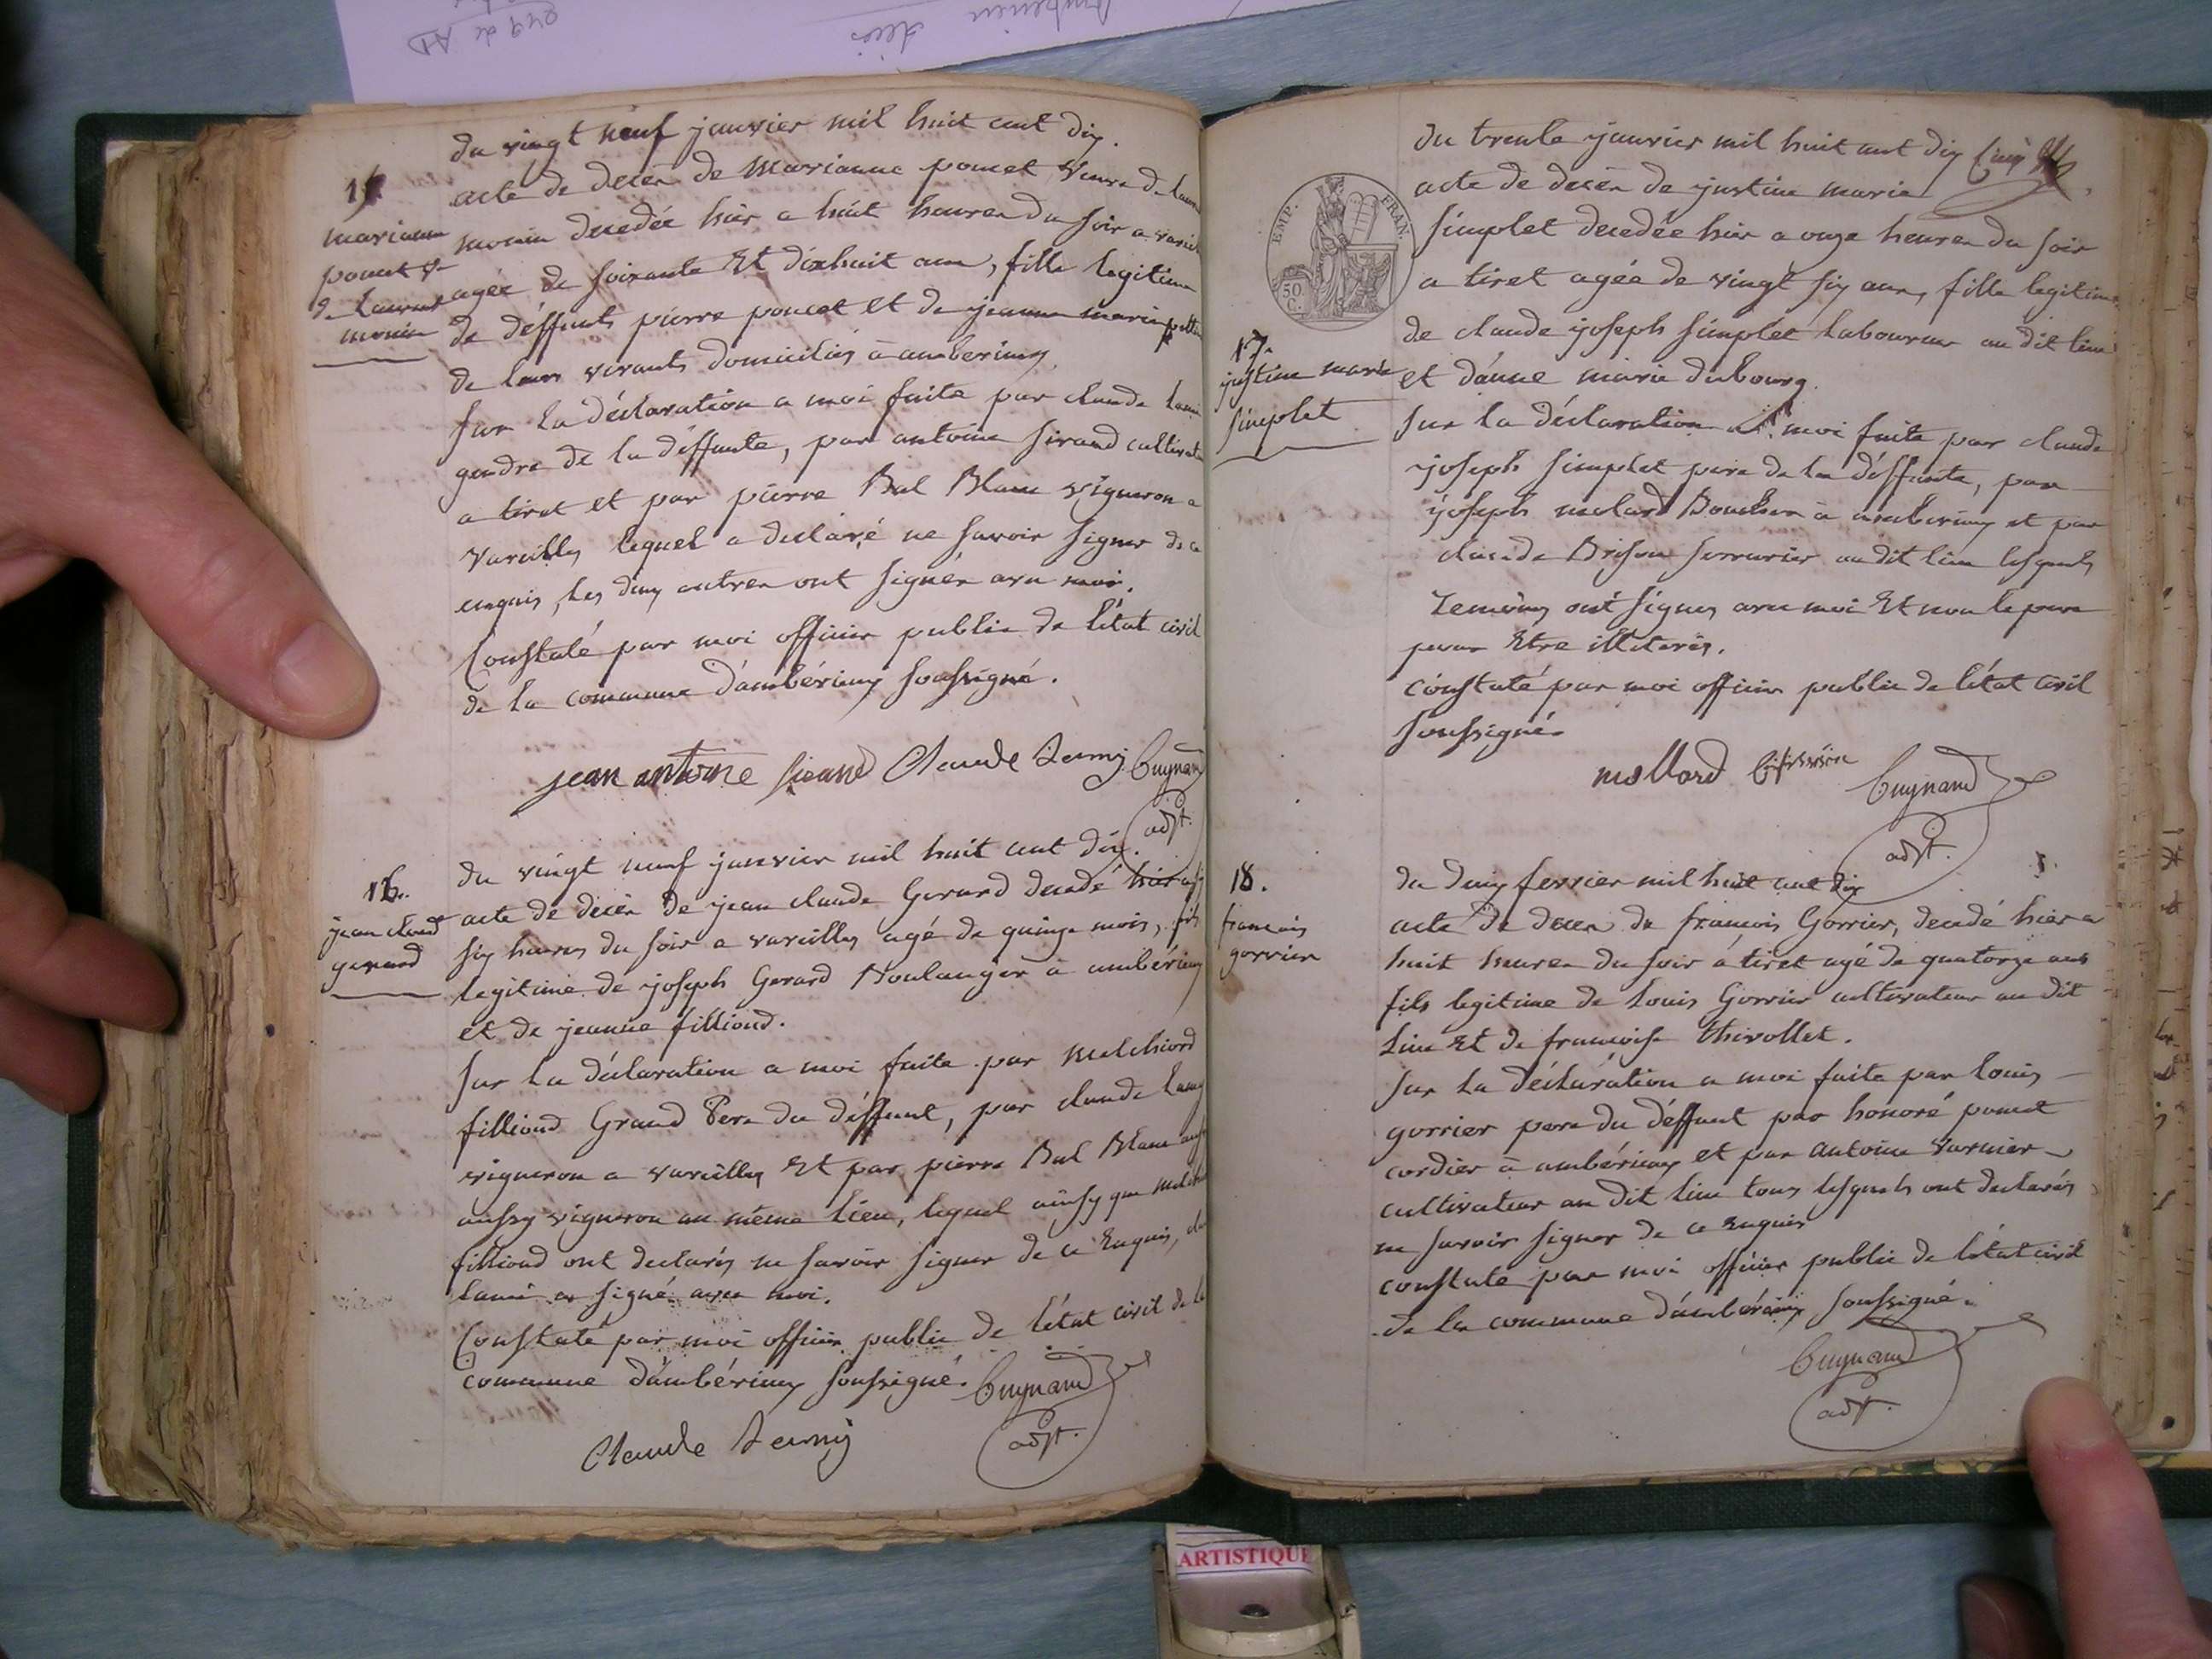 du vingt neuf janvier mil huit cent dix.
15
marianne
poncet ve
de laurent
monin
acte de décèa de Marianne poncet Veuve de laurent
monin decedée hier a huit heures du soir a vareille
agée de soixante Et dixhuit ans, fille legitime
de déffunts pierre poncet et de jeanne marie
de leurs vivants domiciliés à ambérieux
sur la déclaration a moi faite par claude lami
gendre de la déffunte, par antoine sirand cultivateur
a tiret et par pierre Bal Blanc vigneron a
vareilles lequel a declaré ne savoir signer de ce
enquis, les deux autres ont signés avec moi.
Constaté par moi officier public de l'état civil
de la commune d'ambérieux soussigné.
jean antoine sirand Claude Lamy Cuynand
adjt.
16.
jean claude
gerard
du vingt neuf janvier mil huit cent dix.
acte de décèa de jean claude Gerard decedé hier a
six heures du soir a vareilles agé de quinze mois, fils
legitime de joseph Gerard Boulanger à ambérieux
et de jeanne filliond.
sur la déclaration a moi faite par Melchiord
filliond Grand Pere du déffunt, par claude lamy
vigneron a vareilles Et par pierre Bal Blanc
aussy vigneron au même lieu, lequel ainsy que
filliond ont declarés ne savoir signer de ce Enquis,
lami a signé avec moi.
Constaté par moi officier public de l'état civil de la
commune d'ambérieux soussigné. Cuynand
adjt.
Claude Lamy
du trente janvier mil huit cent dix
EMP. FRAN.
50 C.
17.
justine marie
simplet
acte de décèa de justine marie
simplet decedée hier a onze heures du soir
a tiret agée de vingt six ans, fille legitime
de claude joseph simplet laboureur au dit lieu
et d'anne marie dubourg.
sur la déclaration a moi faite par claude
joseph simplet pere de la déffunte, par
joseph molard Boucher à ambérieux et par
claude Brison serrurier au dit lieu lesquels
Temoins ont signés avec moi Et non le pere
pour Etre illiterés.
constaté par moi officier public de l'état civil
soussigné.
mollard Cuynand
adjt.
18.
francois
gorrier
du deux fevrier mil huit cent dix
acte de décèa de francois Gorrier, decedé hier a
huit heures du soir à tiret agé de quatorze ans
fils legitime de Louis Gorrier cultivateur au dit
lieu Et de francoise thivollet.
sur la déclaration a moi faite par louis
gorrier pere du déffunt par honoré poncet
cordier à ambérieux et par antoine varnier
cultivateur au dit lieu tous lesquels ont declarés
ne savoir signer de ce enquis
constaté par moi officier public de l'état civil
de la commune d'ambérieux soussigné.
Cuynand
adjt.
ARTISTIQUE